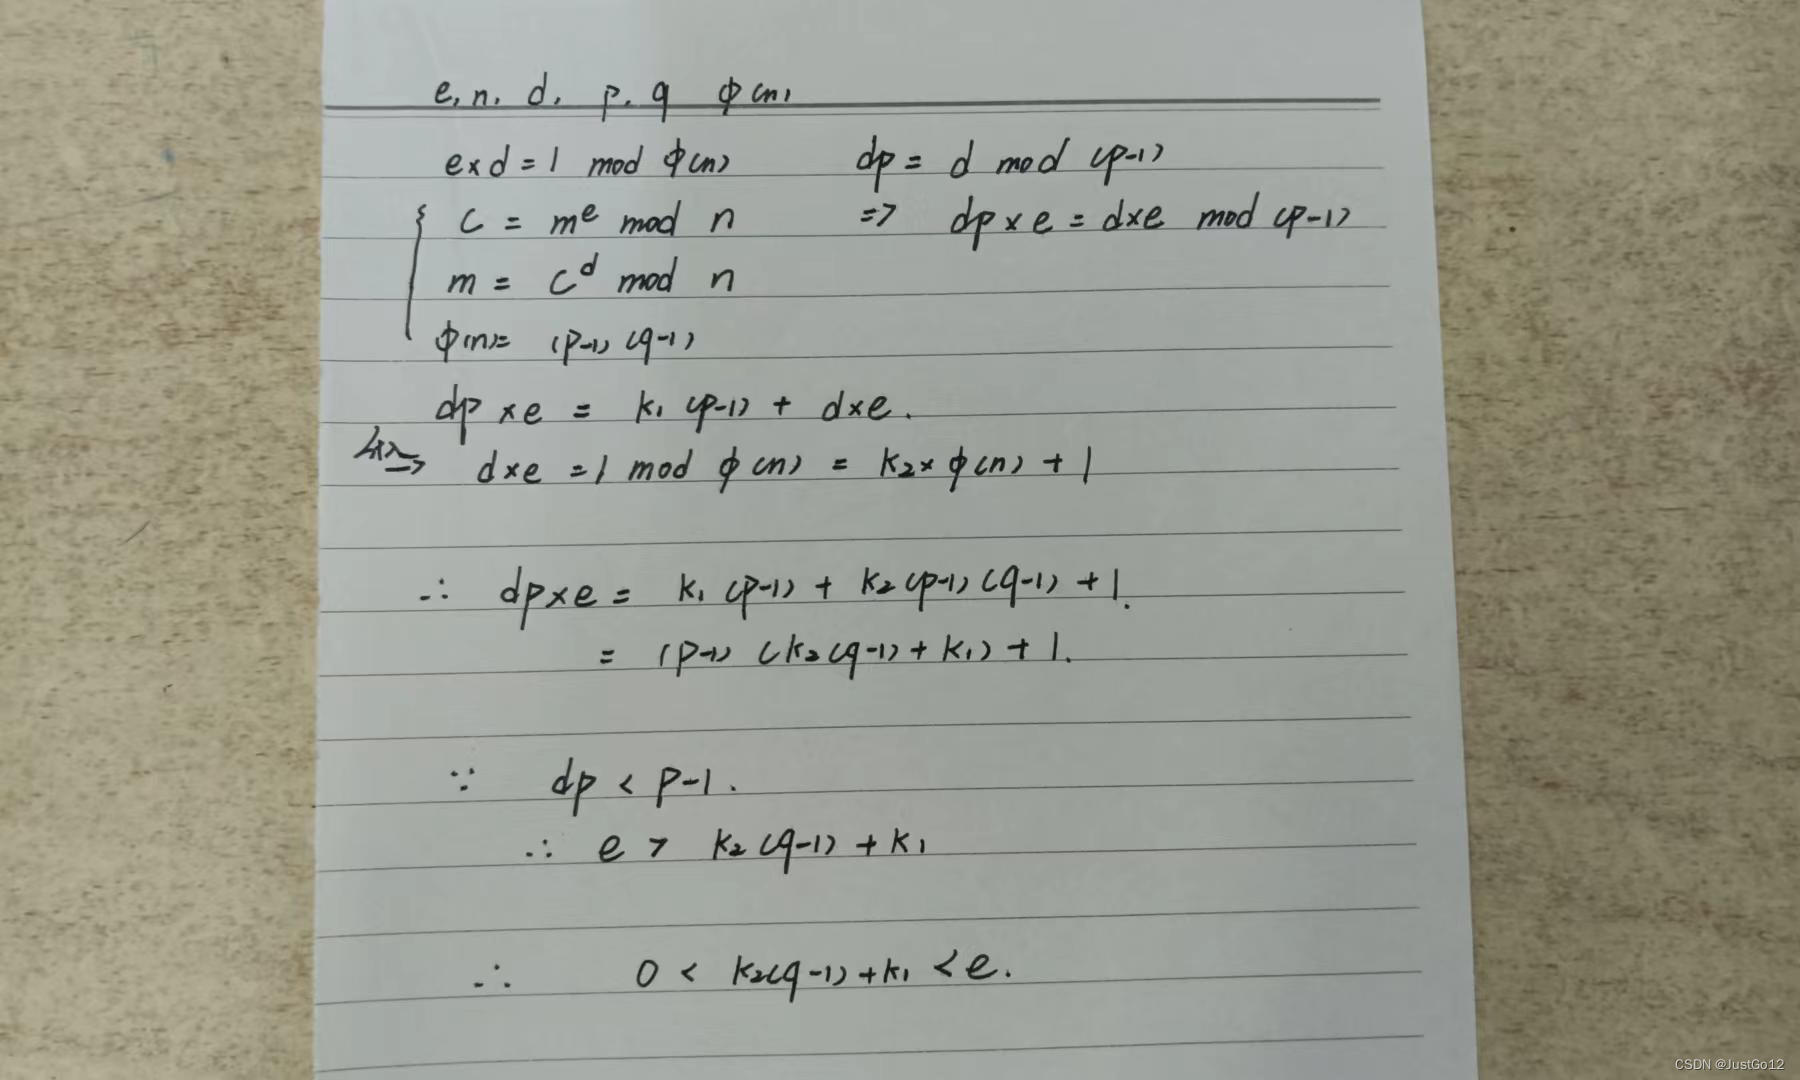 e, n, d, p, q φ(n)
e×d = 1 mod φ(n) dp = d mod (p-1)
c = m^e mod n => dp×e = d×e mod (p-1)
m = c^d mod n
φ(n)= (p-1)(q-1)
dp×e = k₁(p-1) + d×e.
代入→ d×e = 1 mod φ(n) = k₂×φ(n) + 1
∴ dp×e = k₁(p-1) + k₂(p-1)(q-1) + 1.
= (p-1)(k₂(q-1)+k₁) + 1.
∵ dp < p-1.
∴ e > k₂(q-1) + k₁
∴ 0 < k₂(q-1)+k₁ < e.
CSDN @JustGo12